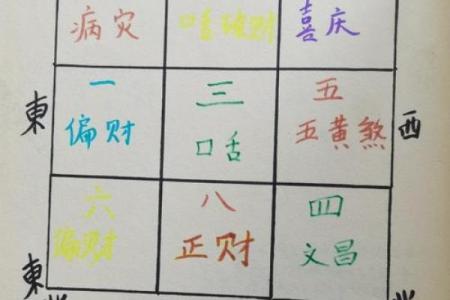 病灾
口舌破财
喜庆
東
一
偏财
三
口舌
五
五黄煞
西
六
偏财
八
正财
四
文昌
東